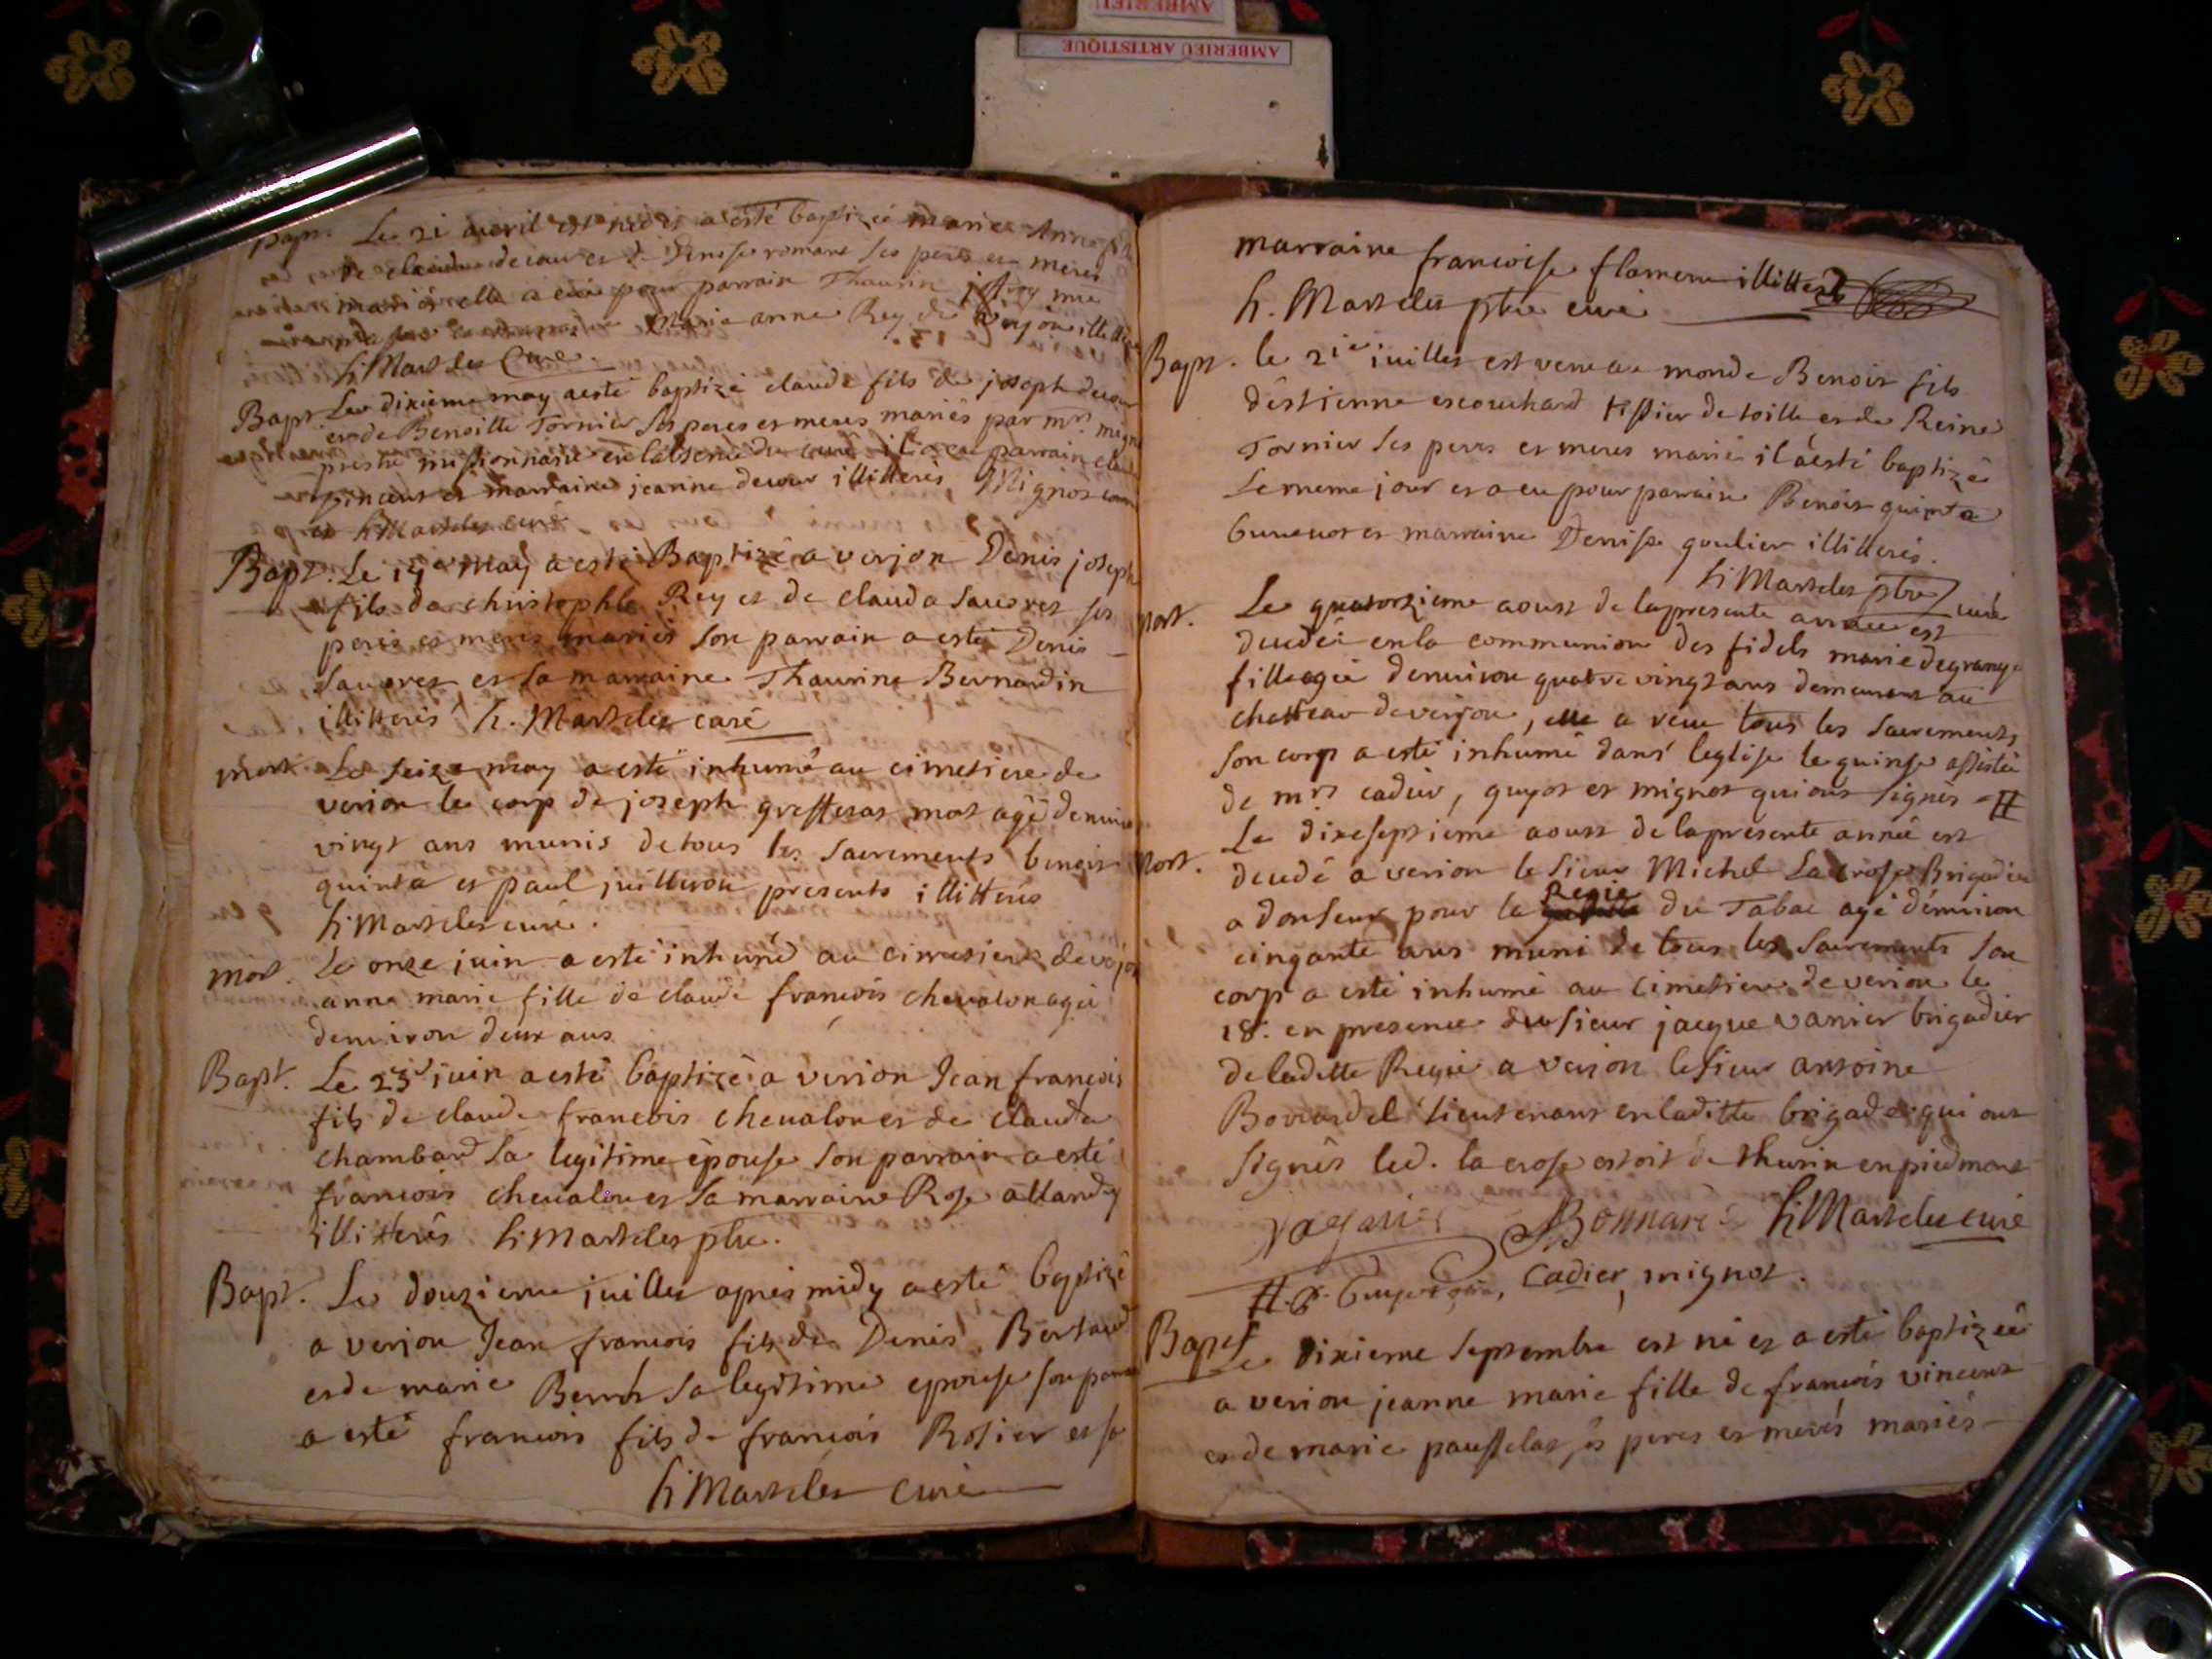 AMBERIEU
AMBERIEU ARTISTIQUE
Bapt. Le 21 avril est née et a esté baptizée marie Anne
de claude decour et de Denise romane ses peres et meres
mariés elle a eu pour parrain Thaurin
marie anne Rey de verjon
h Marteles Curé
Bapt. Le dixieme may a esté baptizé claude fils de joseph decour
et de Benoitte Tornier ses peres et meres mariés par mr. mignot
prestre missionnaire en l'absence du curé il a eu parrain claude
vincent et marraine jeanne decour illitterés, Mignot
et h Marteles curé
Bapt. Le may a esté Baptizé a verjon Denis joseph
fils de christophle Rey et de clauda Sauvres ses
peres et meres mariés son parrain a esté Denis
Sauvres et sa marraine Thaurine Bernardin
illitterés h. Marteles curé
mort. Le seize may a esté inhumé au cimetiere de
verion le corp de joseph greffesas mort agé denuiron
vingt ans munis de tous les Sacrements benoit
quinta et paul juilleron presents illitterés
h Marteles curé.
mort. Le onze juin a esté inhumé au cimetiere de verjon
anne marie fille de claude françois chevalon agée
denuiron deux ans
Bapt. Le 23e juin a esté baptizé a verion Jean françois
fils de claude francois chevalon et de clauda
chambard sa legitime épouse son parrain a esté
francois chevalon et sa marraine Rose allandy
illitterés h Marteles ptre.
Bapt. Le douzieme juillet apres midy a esté baptizé
a verjon Jean francois fils de Denis Bertaud
et de marie Berrod sa legitime epouse son parrain
a esté francois fils de francois Rosier et sa
h Marteles curé
marraine francoise flamene illitterés
h. Marteles ptre curé
Bapt. le 21e juillet est venu au monde Benoit fils
déstienne escouchard tissier de toille et de Reine
Tornier ses peres et meres marié il a esté baptizé
Le meme jour et a eu pour parrain Benoit quinta
et marraine Denise goulier illitterés.
h Marteles ptre curé
Mort. Le quatorzieme aoust de la presente année est
decedée en la communion des fidels marie degrange
fille agée denuiron quatre vingt ans demeurant au
chatteau de verjon, elle a receu tous les Sacrements
son corp a esté inhumé dans l'eglise le quinse assistée
de mrs cadier, guyot et mignot qui ont signés #
Mort. Le dixeseptieme aoust de la presente année est
decedé a verion le sieur Michel La crose Brigadier
a donseur pour la Regie du Tabac agé dénuiron
cinqante ans muni de tous les Sacrements son
corp a esté inhumé au cimetiere de verion le
18. en presence du sieur jacque vanier brigadier
de laditte Regie a verjon le sieur antoine
Bovardel lieutenant en laditte brigade qui ont
signés led. la crose estoit de thurin en piedmont
Bonnard h Marteles curé
#. Cadier, mignot.
Bapt. Le dixieme septembre est né et a esté baptizée
a verion jeanne marie fille de francois vincent
et de marie pausselas ses peres et meres mariés